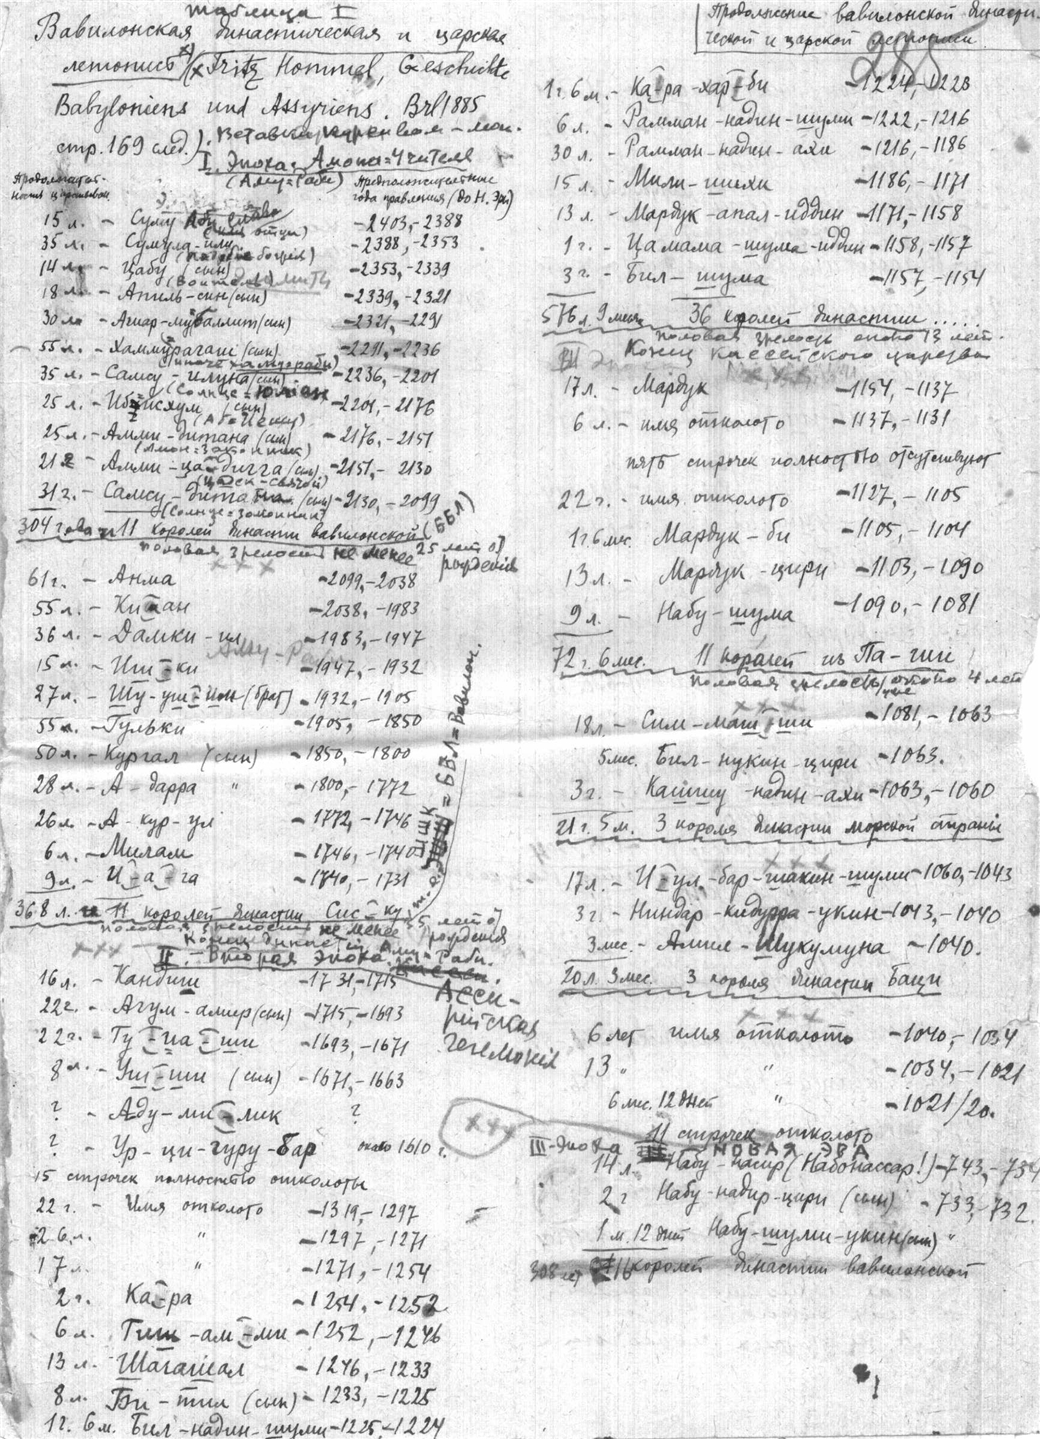 Таблица I
Вавилонская династическая и царская
летопись (x Fritz Hommel, Geschichte
Babyloniens und Assyriens. Brl 1885
стр. 169 след.). Вставлены
I Эпоха: Амона = Учителя
(Аму = Раби)
Продолжитель-
ность царствован.
Предположительные
года правления (до Н. Эры)
15 л. - Суму -2403,-2388
35 л. - Сумула-илу -2388,-2353
14 л. - Цабу (сын) -2353,-2339
18 л. - Апиль-син (сын) -2339,-2321
30 л. - Апиар-мубаллит (сын) -2321,-2291
55 л. - Хаммурагаш (сын) -2291,-2236
(иначе Хаммураби)
35 л. - Самсу-илуна (сын) -2236,-2201
25 л. - (сын) -2201,-2176
25 л. - Амми-дитана (сын) -2176,-2151
21 г. - Амми-ца-дугга (сын) -2151,-2130
31 г. - Самсу-дитана (сын) -2130,-2099
304 года и 11 королей династии вавилонской (ББЛ)
половая зрелость не менее 25 лет от рождения
x x x
61 г. - Анма -2099,-2038
55 л. - Ки-ан -2038,-1983
36 л. - Дамки-ил -1983,-1947
15 л. - Иш-ки -1947,-1932
27 л. - Шу-уш- (брат) -1932,-1905
55 л. - Гулькы -1905,-1850
50 л. - Кургал (сын) -1850,-1800
28 л. - А-дарра " -1800,-1772
26 л. - А-кур-ул -1772,-1746
6 л. - Милам -1746,-1740
9 л. - И-а-га -1740,-1731
368 л. и 11 королей династии Сис-ку
половая зрелость не менее 35 лет от рождения
xxx Конец династии Аму-Раби.
II. - Вторая эпоха.
Асси-
рийская
гегемония
16 л. - Кандиш -1731,-1715
22 г. - Агум-ашир (сын) -1715,-1693
22 г. - Гу-иа-ши -1693,-1671
8 л. - Уш-ши (сын) -1671,-1663
? - Аду-ми-лик ?
? - Ур-ци-гуру-бар около 1610 г.
15 строчек полностью отколоты
22 г. - Имя отколото -1319,-1297
26 л. " -1297,-1271
17 л. " -1271,-1254
2 г. Ка-ра -1254,-1252
6 л. Гиш-ам-ми -1252,-1246
13 л. Шагашал -1246,-1233
8 л. Би-тил (сын) -1233,-1225
1 г. 6 м. Бил-надин-шуми -1225,-1224
Продолжение вавилонской династи-
ческой и царской летописи
285
1 г. 6 м. - Ка-ра-хар-би -1224,-1223
6 л. - Рамман-надин-шуми -1222,-1216
30 л. - Рамман-надин-ахи -1216,-1186
15 л. - Мили-шихи -1186,-1171
13 л. - Мардук-апал-иддин -1171,-1158
1 г. - Цамама-шума-иддин -1158,-1157
3 г. - Бил-шума -1157,-1154
576 л. 9 мес. 36 королей династии .....
половая зрелость около 13 лет.
Конец Кассейского царства
17 л. - Мардук -1154,-1137
6 л. - имя отколото -1137,-1131
пять строчек полностью отсутствуют
22 г. - имя отколото -1127,-1105
1 г. 6 мес. Мардук-би -1105,-1104
13 л. - Мардук-цири -1103,-1090
9 л. - Набу-шума -1090,-1081
72 г. 6 мес. 11 королей из Па-ши
половая зрелость около 4 лет
18 л. - Сим-маш-ши -1081,-1063
5 мес. Бил-нукин-цири -1063.
3 г. - Кашшу-надин-ахи -1063,-1060
21 г. 5 м. 3 короля династии морской страны
x x x
17 л. - И-ул-бар-шакин-шуми -1060,-1043
3 г. - Ниндар-кидурра-укин -1043,-1040
3 мес. - Амил-Шукумуна -1040.
20 л. 3 мес. 3 короля династии Баци
x x x
6 лет имя отколото -1040,-1034
13 " " -1034,-1021
6 мес. 12 дней " -1021/20.
xxx 11 строчек отколото
III-эпоха НОВАЯ ЭРА
14 л. Набу-насир (Набонассар!) -743,-734
2 г Набу-надир-цири (сын) -733,-732.
1 м. 12 дней Набу-шуми-укин (сын) "
308 лет 16 королей династии вавилонской